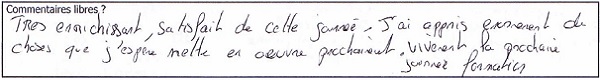 Commentaires libres ?
Très enrichissant, satisfait de cette journée. J'ai appris énormément de
choses que j'espère mettre en oeuvre prochainement, vivement la prochaine
journée formation